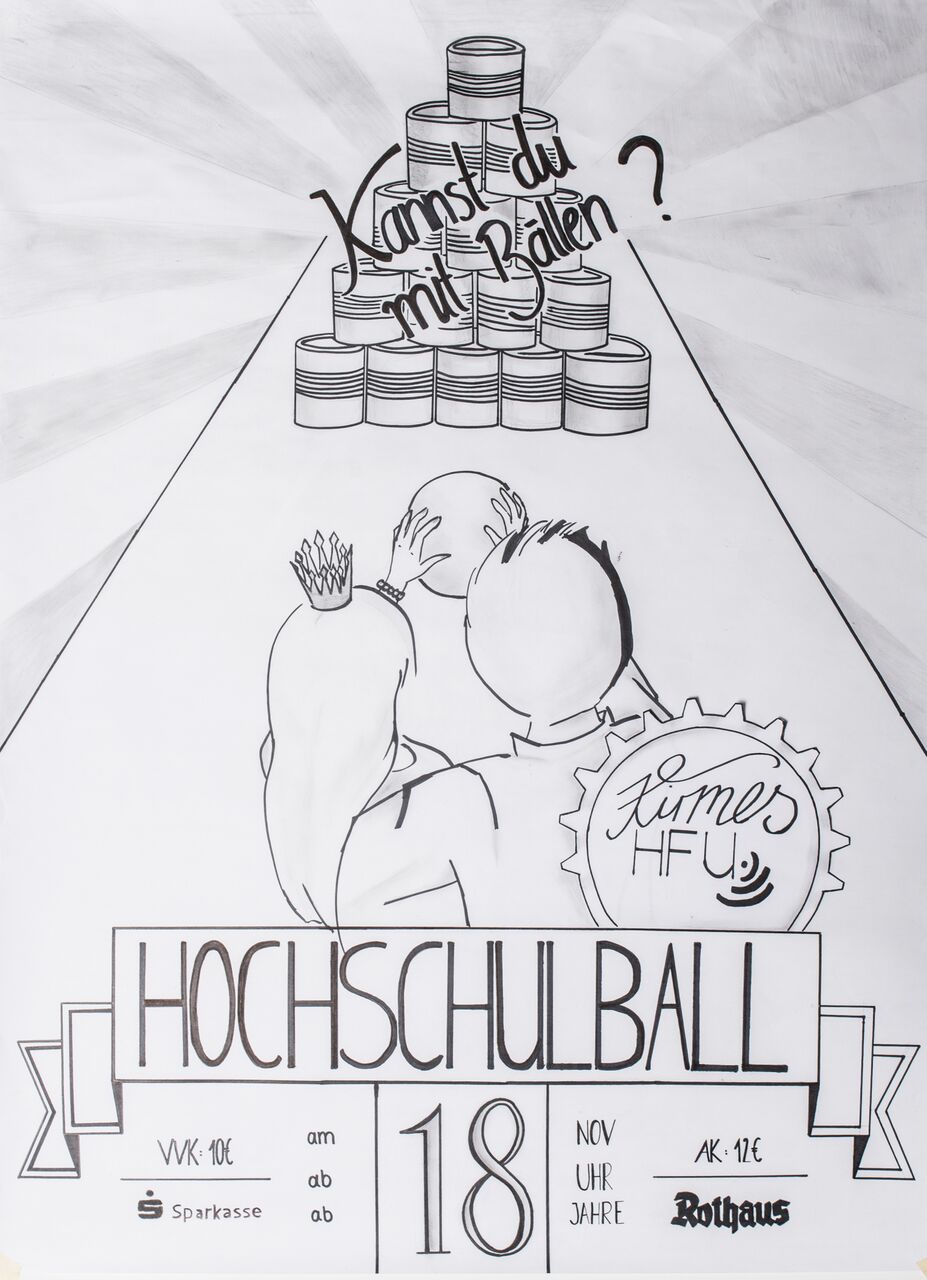 Kannst du
mit Bällen ?
Kirmes
HFU
HOCHSCHULBALL
VVK: 10€
Sparkasse
am
ab
ab
18
NOV
UHR
JAHRE
AK: 12€
Rothaus